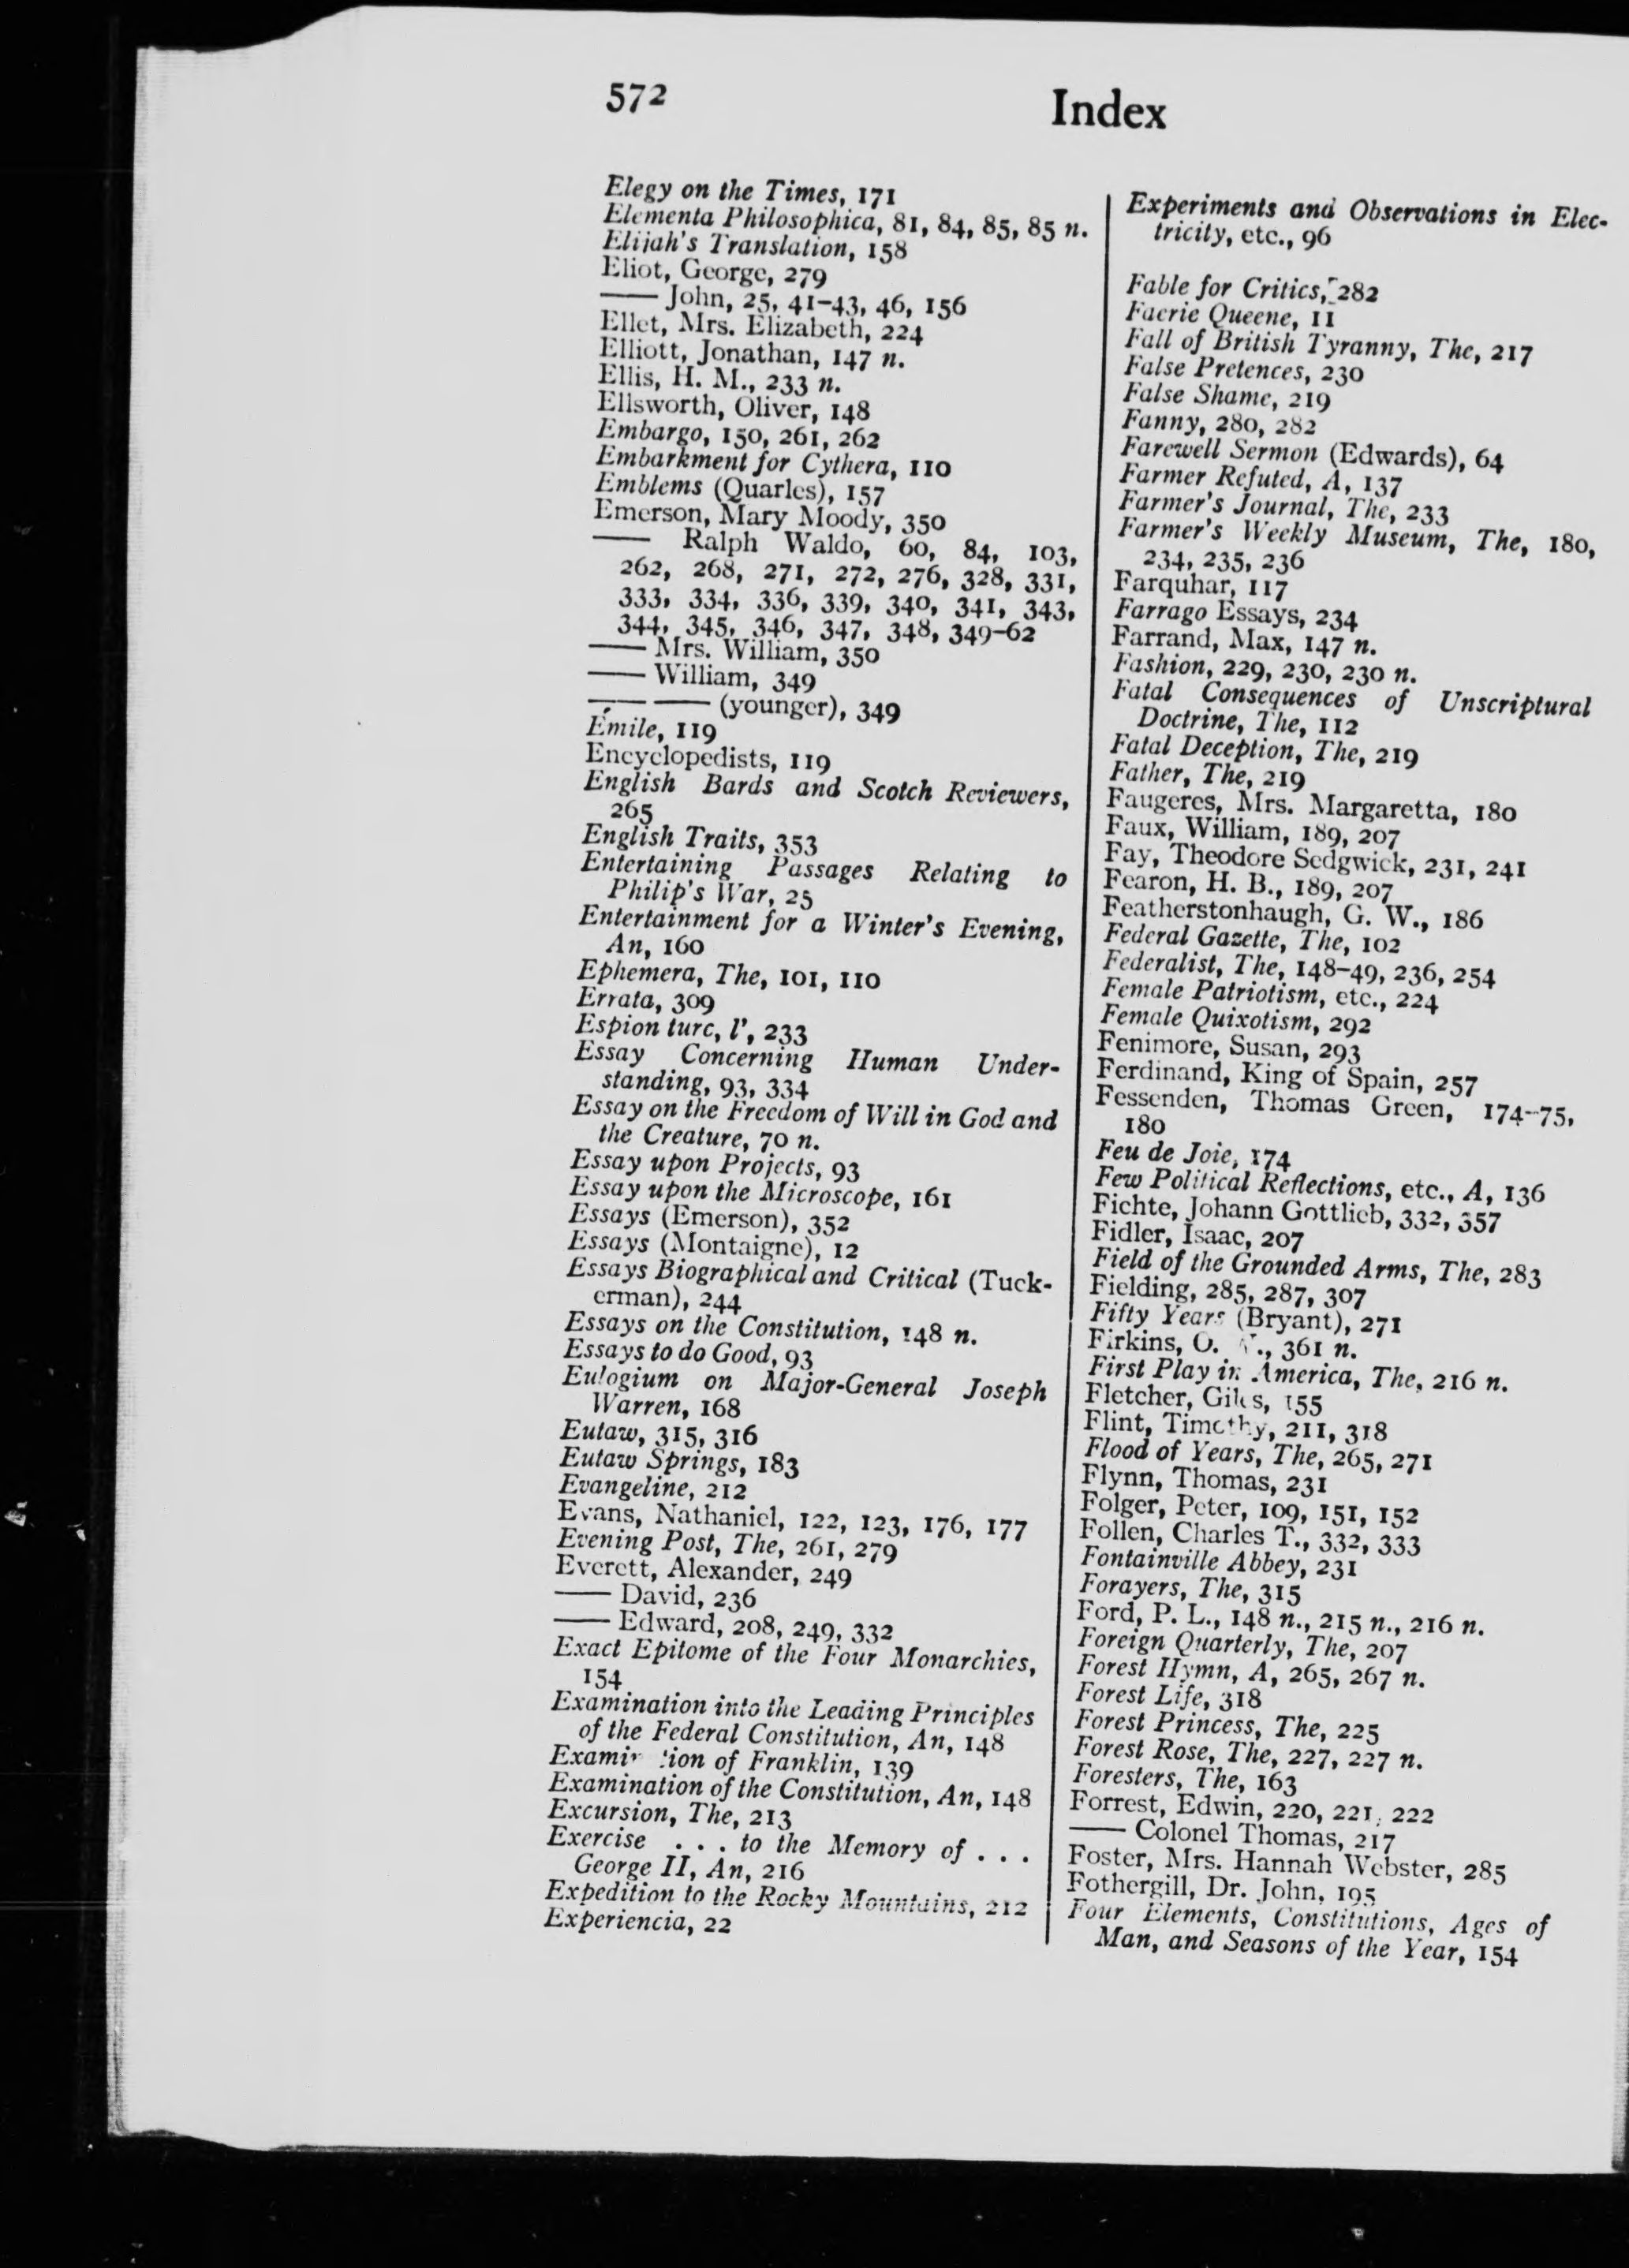 572
Index
Elegy on the Times, 171
Elementa Philosophica, 81, 84, 85, 85 n.
Elijah's Translation, 158
Eliot, George, 279
—— John, 25, 41-43, 46, 156
Ellet, Mrs. Elizabeth, 224
Elliott, Jonathan, 147 n.
Ellis, H. M., 233 n.
Ellsworth, Oliver, 148
Embargo, 150, 261, 262
Embarkment for Cythera, 110
Emblems (Quarles), 157
Emerson, Mary Moody, 350
—— Ralph Waldo, 60, 84, 103,
262, 268, 271, 272, 276, 328, 331,
333, 334, 336, 339, 340, 341, 343,
344, 345, 346, 347, 348, 349-62
—— Mrs. William, 350
—— William, 349
—— —— (younger), 349
Émile, 119
Encyclopedists, 119
English Bards and Scotch Reviewers,
265
English Traits, 353
Entertaining Passages Relating to
Philip's War, 25
Entertainment for a Winter's Evening,
An, 160
Ephemera, The, 101, 110
Errata, 309
Espion turc, l', 233
Essay Concerning Human Under-
standing, 93, 334
Essay on the Freedom of Will in God and
the Creature, 70 n.
Essay upon Projects, 93
Essay upon the Microscope, 161
Essays (Emerson), 352
Essays (Montaigne), 12
Essays Biographical and Critical (Tuck-
erman), 244
Essays on the Constitution, 148 n.
Essays to do Good, 93
Eulogium on Major-General Joseph
Warren, 168
Eutaw, 315, 316
Eutaw Springs, 183
Evangeline, 212
Evans, Nathaniel, 122, 123, 176, 177
Evening Post, The, 261, 279
Everett, Alexander, 249
—— David, 236
—— Edward, 208, 249, 332
Exact Epitome of the Four Monarchies,
154
Examination into the Leading Principles
of the Federal Constitution, An, 148
of Franklin, 139
Examination of the Constitution, An, 148
Excursion, The, 213
Exercise . . . to the Memory of . . .
George II, An, 216
Expedition to the Rocky Mountains, 212
Experiencia, 22
Experiments and Observations in Elec-
tricity, etc., 96
Fable for Critics, 282
Faerie Queene, 11
Fall of British Tyranny, The, 217
False Pretences, 230
False Shame, 219
Fanny, 280, 282
Farewell Sermon (Edwards), 64
Farmer Refuted, A, 137
Farmer's Journal, The, 233
Farmer's Weekly Museum, The, 180,
234, 235, 236
Farquhar, 117
Farrago Essays, 234
Farrand, Max, 147 n.
Fashion, 229, 230, 230 n.
Fatal Consequences of Unscriptural
Doctrine, The, 112
Fatal Deception, The, 219
Father, The, 219
Faugeres, Mrs. Margaretta, 180
Faux, William, 189, 207
Fay, Theodore Sedgwick, 231, 241
Fearon, H. B., 189, 207
Featherstonhaugh, G. W., 186
Federal Gazette, The, 102
Federalist, The, 148-49, 236, 254
Female Patriotism, etc., 224
Female Quixotism, 292
Fenimore, Susan, 293
Ferdinand, King of Spain, 257
Fessenden, Thomas Green, 174-75,
180
Feu de Joie, 174
Few Political Reflections, etc., A, 136
Fichte, Johann Gottlieb, 332, 357
Fidler, Isaac, 207
Field of the Grounded Arms, The, 283
Fielding, 285, 287, 307
Fifty Years (Bryant), 271
Firkins, O. 361 n.
First Play in America, The, 216 n.
Fletcher, Giles, 155
Flint, Timothy, 211, 318
Flood of Years, The, 265, 271
Flynn, Thomas, 231
Folger, Peter, 109, 151, 152
Follen, Charles T., 332, 333
Fontainville Abbey, 231
Forayers, The, 315
Ford, P. L., 148 n., 215 n., 216 n.
Foreign Quarterly, The, 207
Forest Hymn, A, 265, 267 n.
Forest Life, 318
Forest Princess, The, 225
Forest Rose, The, 227, 227 n.
Foresters, The, 163
Forrest, Edwin, 220, 221, 222
—— Colonel Thomas, 217
Foster, Mrs. Hannah Webster, 285
Fothergill, Dr. John, 195
Four Elements, Constitutions, Ages of
Man, and Seasons of the Year, 154